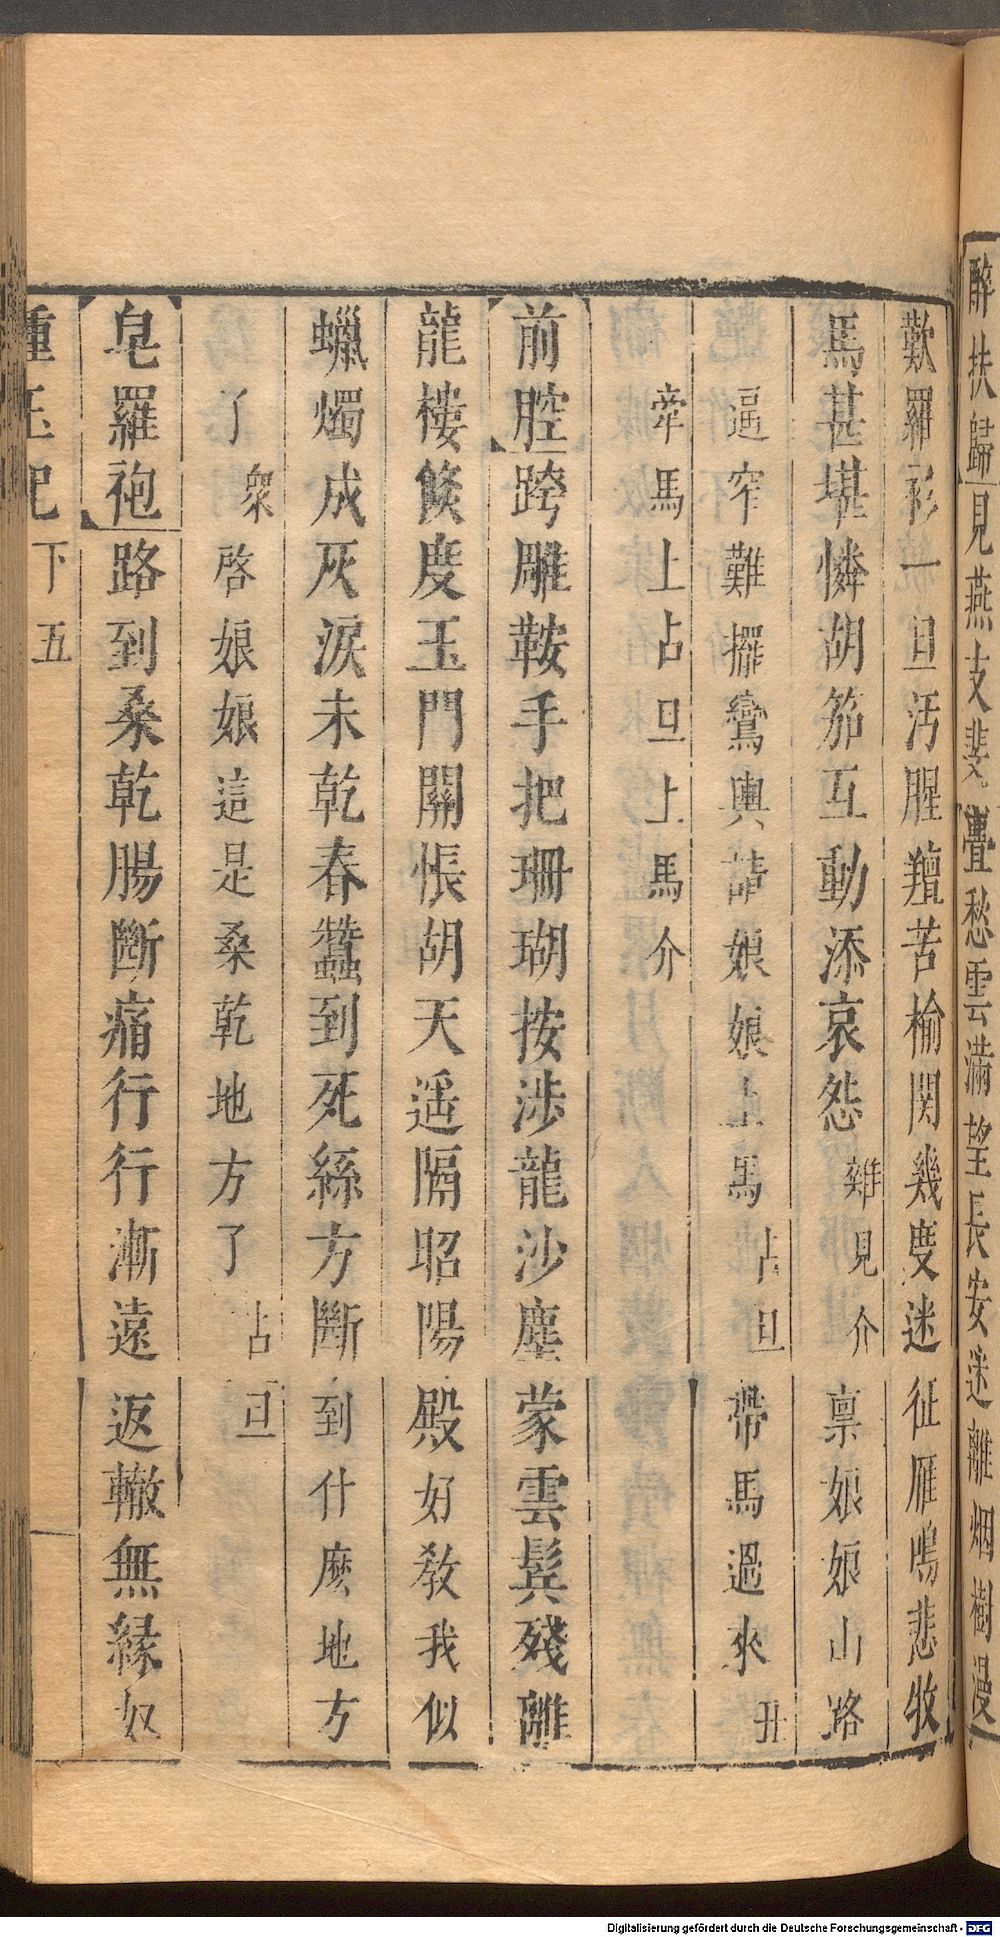 醉扶歸見燕支斐疊愁雲滿望長安迷離烟樹漫
歎羅衫一旦汚腥羶苦榆関幾度迷征雁鳴悲牧
馬甚堪憐胡笳互動添哀怨雜見介禀娘娘山路
逼窄難擺鸞輿請娘娘上馬占旦帶馬過來丑
牽馬上占旦上馬介
前腔跨雕鞍手把珊瑚按涉龍沙塵蒙雲髩殘離
龍樓餤度玉門關悵胡天遥隔昭陽殿好教我似
蠟燭成灰淚未乾春蠶到死絲方斷到什麽地方
了衆啓娘娘這是桑乾地方了占旦
皂羅袍路到桑乾腸斷痛行行漸遠返轍無緣奴
種玉記下五
Digitalisierung gefördert durch die Deutsche Forschungsgemeinschaft - DFG